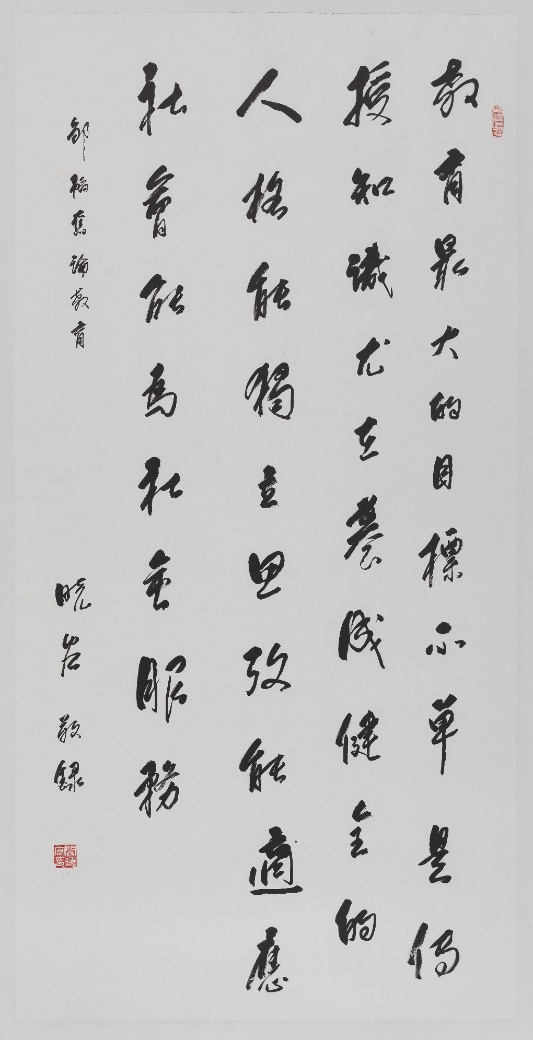 教育最大的目標不單是傳
授知識尤在養成健全的
人格能獨立思攷能適應
社會能為社会服務
邹韜奮論教育
曉岩敬録